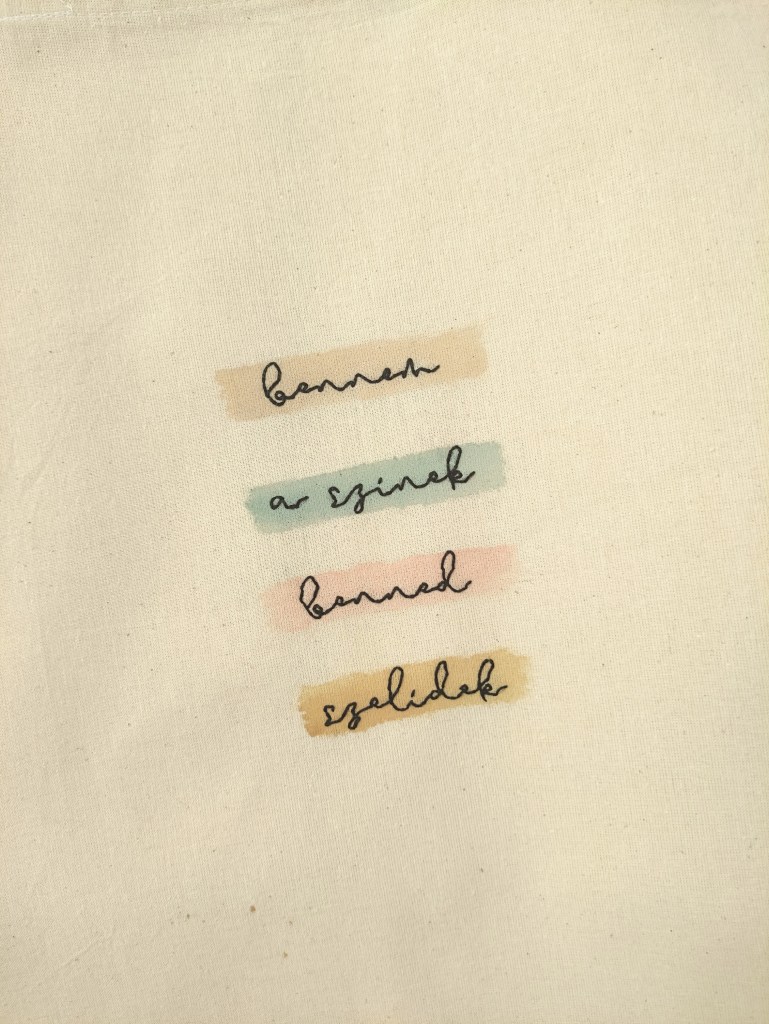 bennem
a szinek
benned
szelidek